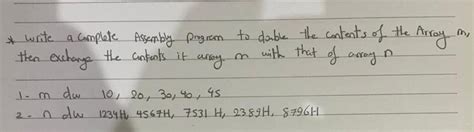 * Write a Complete Assembly Program to double the Contents of the Array m,
then exchange the Contents it array m with that of array n
1- m dw 10, 20, 30, 40, 45
2- n dw 1234H, 4567H, 7531 H, 2389H, 8796H